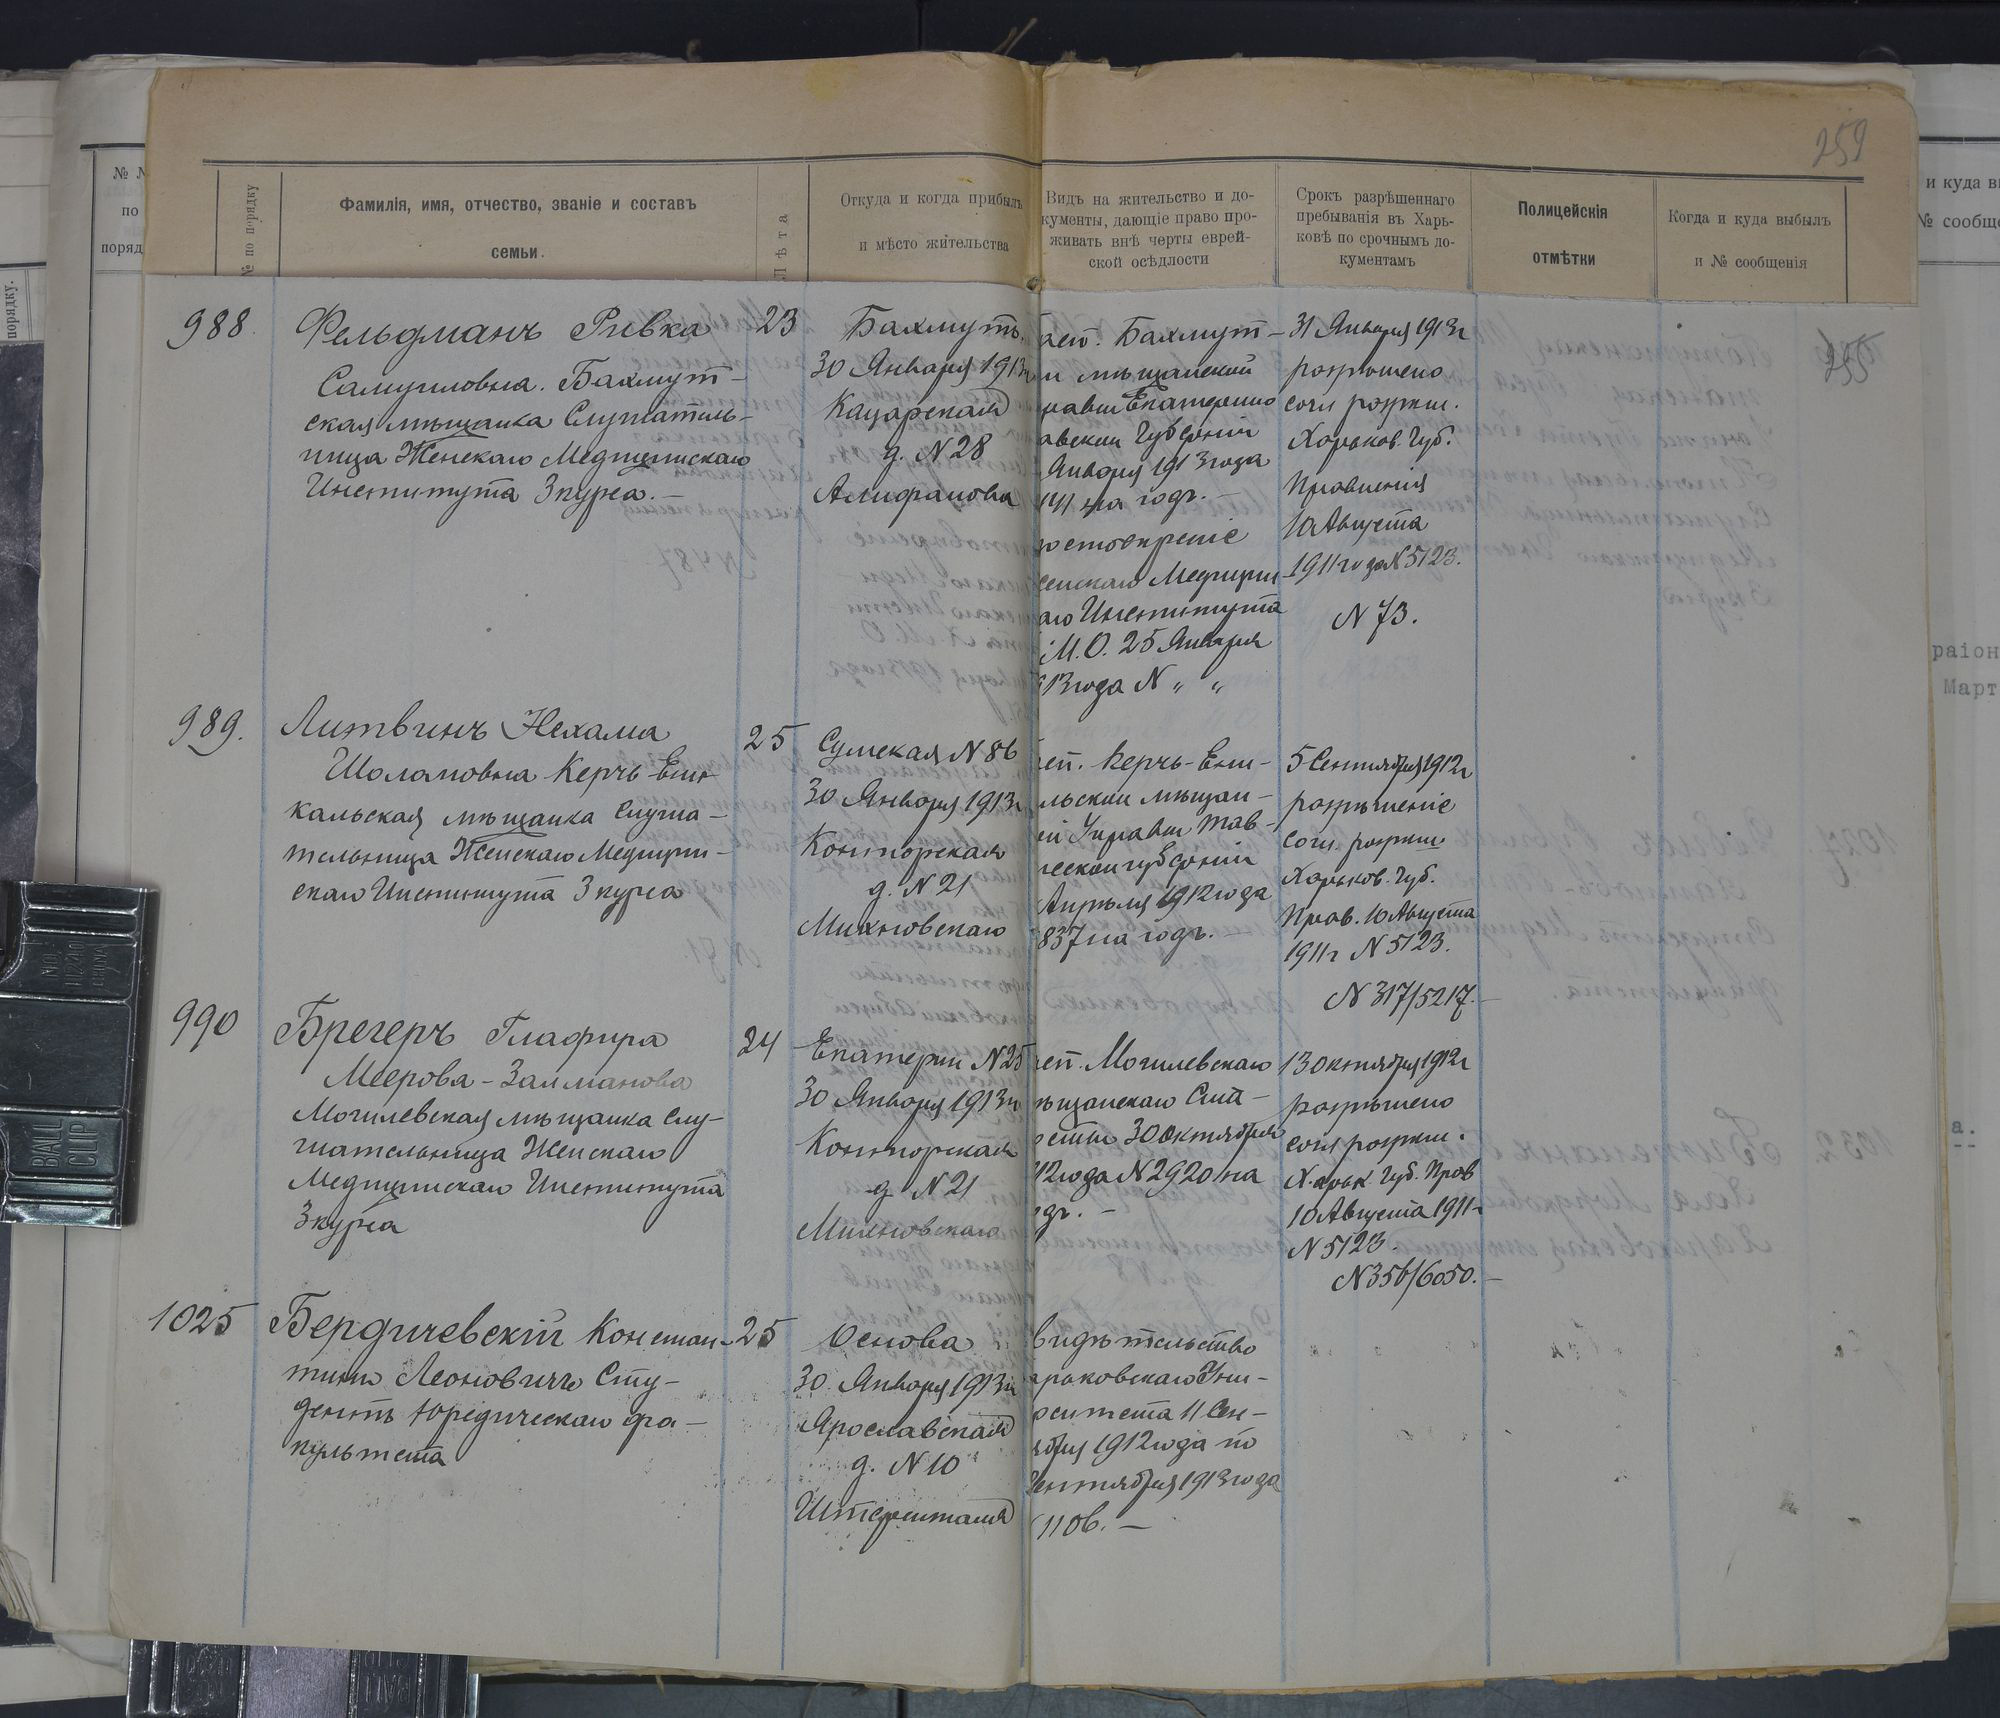 259
№ по порядку
Фамилія, имя, отчество, званіе и составъ
семьи.
Лѣта
Откуда и когда прибылъ
и мѣсто жительства
Видъ на жительство и до-
кументы, дающіе право про-
живать внѣ черты еврей-
ской осѣдлости
Срокъ разрѣшеннаго
пребыванія въ Харь-
ковѣ по срочнымъ до-
кументамъ
Полицейскія
отмѣтки
Когда и куда выбылъ
и № сообщенія
988.
Фельдманъ Ривка
Самуиловна. Бахмут-
ская мѣщанка Слушатель-
ница Женскаго Медицинскаго
Института 3 курса.-
23
Бахмутъ.
30 Января 1913г
Кацарская
д. N 28
Алифанова
Бахмут-
мѣщанской
Екатерино
Губерніи
Января 1913 года
на годъ.-
Медицин
Института
М.О. 25 Января
13 года N " "
31 Января 1913г
разрѣшено
согл разъяс.
Харьков. Губ.
Правленія
10 Августа
1911 года N 5123.
N 73.
255
989.
Литвинъ Нехама
Шоломовна Керчь-Ени-
кальская мѣщанка слуша-
тельница Женскаго Медицин-
скаго Института 3 курса
25
Сумская N 86
30 Января 1913г
Конторская
д. N 21
Михновскаго
Керчь-Ени-
льской мѣщан-
ей Управы Тав-
ческой губерніи
Апрѣля 1912 года
837 на годъ.-
5 Сентября 1912г
разрѣшеніе
согл. разъяс
Харьков. Губ.
Прав. 10 Августа
1911г N 5123.
N 317/5217.-
990
Брегеръ Глафира
Меерова-Залманова
Могилевская мѣщанка слу-
шательница Женскаго
Медицинскаго Института
3 курса
24
Екатерин N 25
30 Января 1913г
Конторская
д N 21
Михновскаго
Могилевскаго
ѣщанскаго Ста-
30 Октября
12 года N 2920 на
дъ.-
13 Октября 1912г
разрѣшено
согл разъяс.
Харьк. Губ. Прав
10 Августа 1911г
N 5123.
N 356/6050.-
1025
Бердичевскій Констан-
тинъ Леоновичъ Сту-
дентъ Юридическаго фа-
культета
25
Основа
30 Января 1913г
Ярославская
д. N 10
видѣтельство
арьковскаго Уни-
рситета 11 Сен-
ября 1912 года по
Сентября 1913 года
1106.-